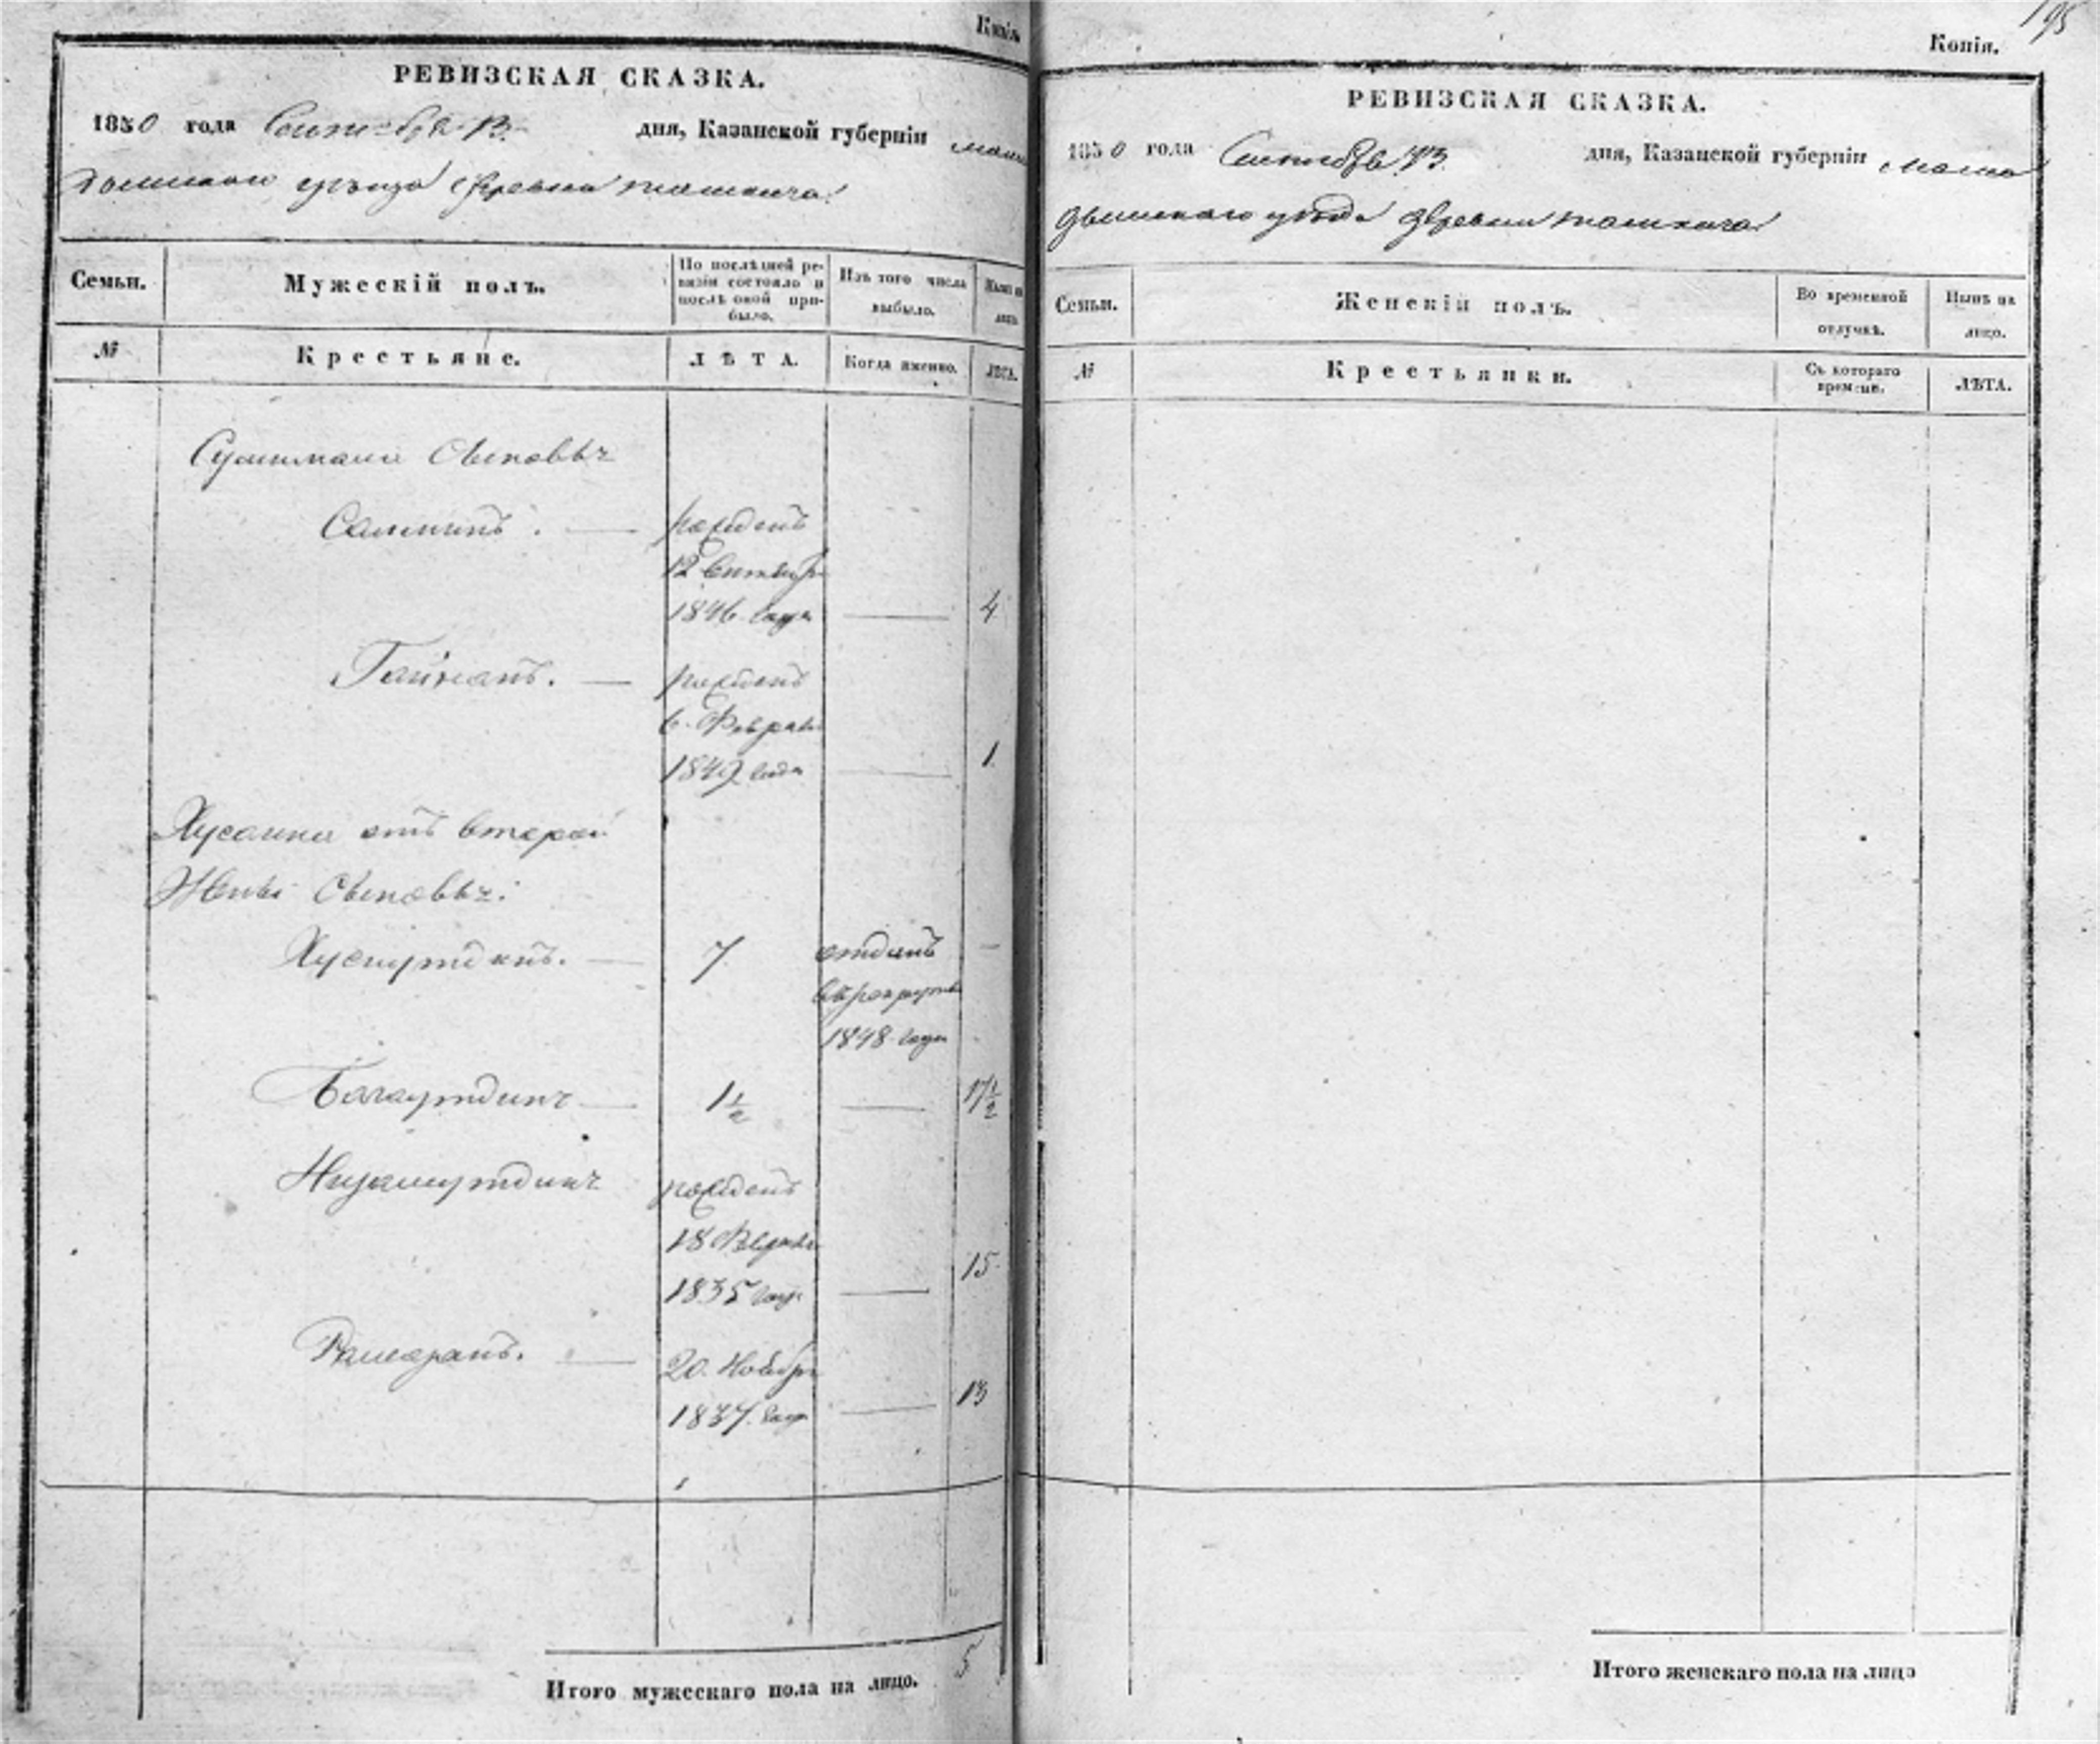 Копія.
РЕВИЗСКАЯ СКАЗКА.
1850 года Сентября 13. дня, Казанской губерніи мама
дышскаго уѣзда деревни
Семьи.
Мужескій полъ.
По послѣдней ре-
визіи состояло и
послѣ оной при-
было.
Изъ того числа
выбыло.
Нынѣ на
лицо.
№
Крестьяне.
ЛѢТА.
Когда именно.
ЛѢТА.
Сулиманa Сыновьъ
Салимъ. — рожденъ
12 Сентябр
1846 года — 4
Гайнанъ. — рожденъ
6. Феврал
1849 года — 1.
Хусаина отъ второй
Жены Сыновьъ:
Хуснутдинъ. — 7. отданъ —
въ рекруты
1848 года
Багаутдинъ — 1 1/2 — 17 1/2
Низамутдинъ рожденъ
18 Феврал
1835 года — 15
20. Ноябр
1837. года — 13
Итого мужескаго пола на лицо. 5
195
Копія.
РЕВИЗСКАЯ СКАЗКА.
1850 года Сентябр 13. дня, Казанской губерніи мама
дышскаго уѣзда деревни
Семьи.
Женскій полъ.
Во временной
отлучкѣ.
Нынѣ на
лицо.
№
Крестьянки.
Съ котораго
времени.
ЛѢТА.
Итого женскаго пола на лицо